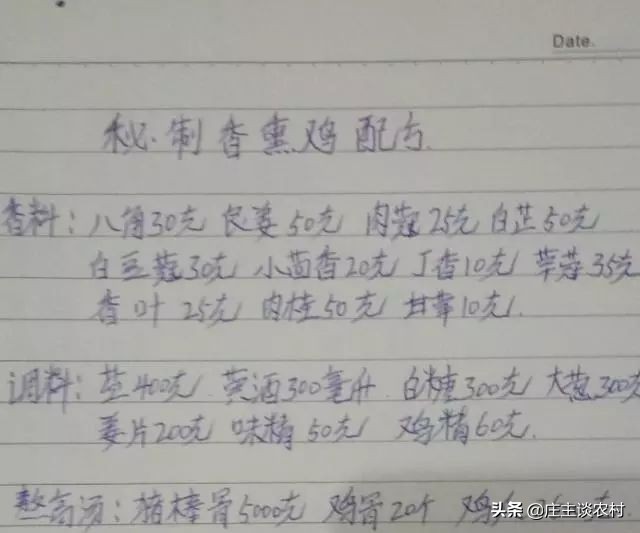 Date.
秘制香熏鸡配方.
香料：八角30克 良姜50克 肉蔻25克 白芷50克
白豆蔻30克 小茴香20克 丁香10克 荜荗35克
香叶 25克 肉桂50克 甘草10克.
调料：盐400克 黄酒300毫升 白糖300克 大葱300克
姜片200克 味精50克 鸡精60克.
熬高汤：猪棒骨5000克 鸡骨20个 鸡
头条 @庄主谈农村